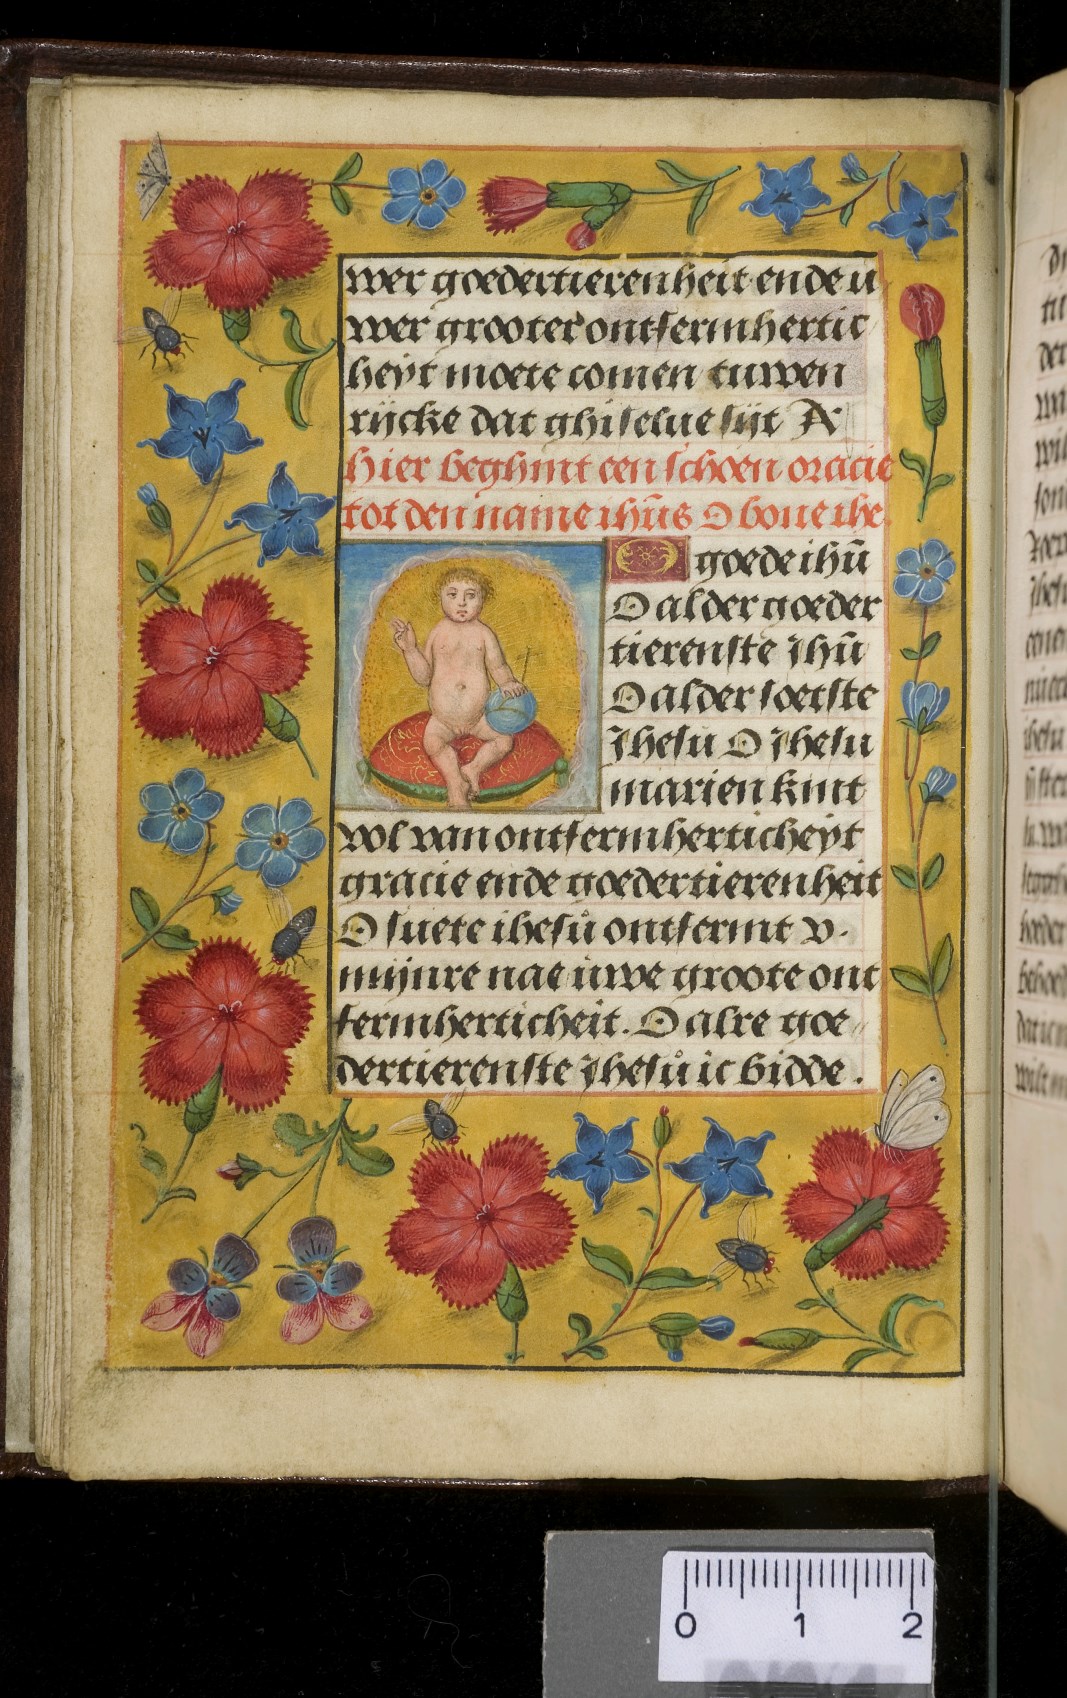 wer goedertierenheit ende u
wer grooter ontfermhertic
heyt moete comen tuwen
rijcke dat ghi selue sijt A
Hier beghint een schoen oracie
tot den name ihūs O bone ihe.
O goede ihū
O alder goeder
tierenste Jhū
O alder soetste
Jhesu O Jhesu
marien kint
vol van ontfermherticheyt
gracie ende goedertierenheit
O suete ihesů ontfermt v.
mijnre nae uwe groote ont
fermherticheit. O alre goe
dertierenste Jhesů ic bidde.
0 1 2